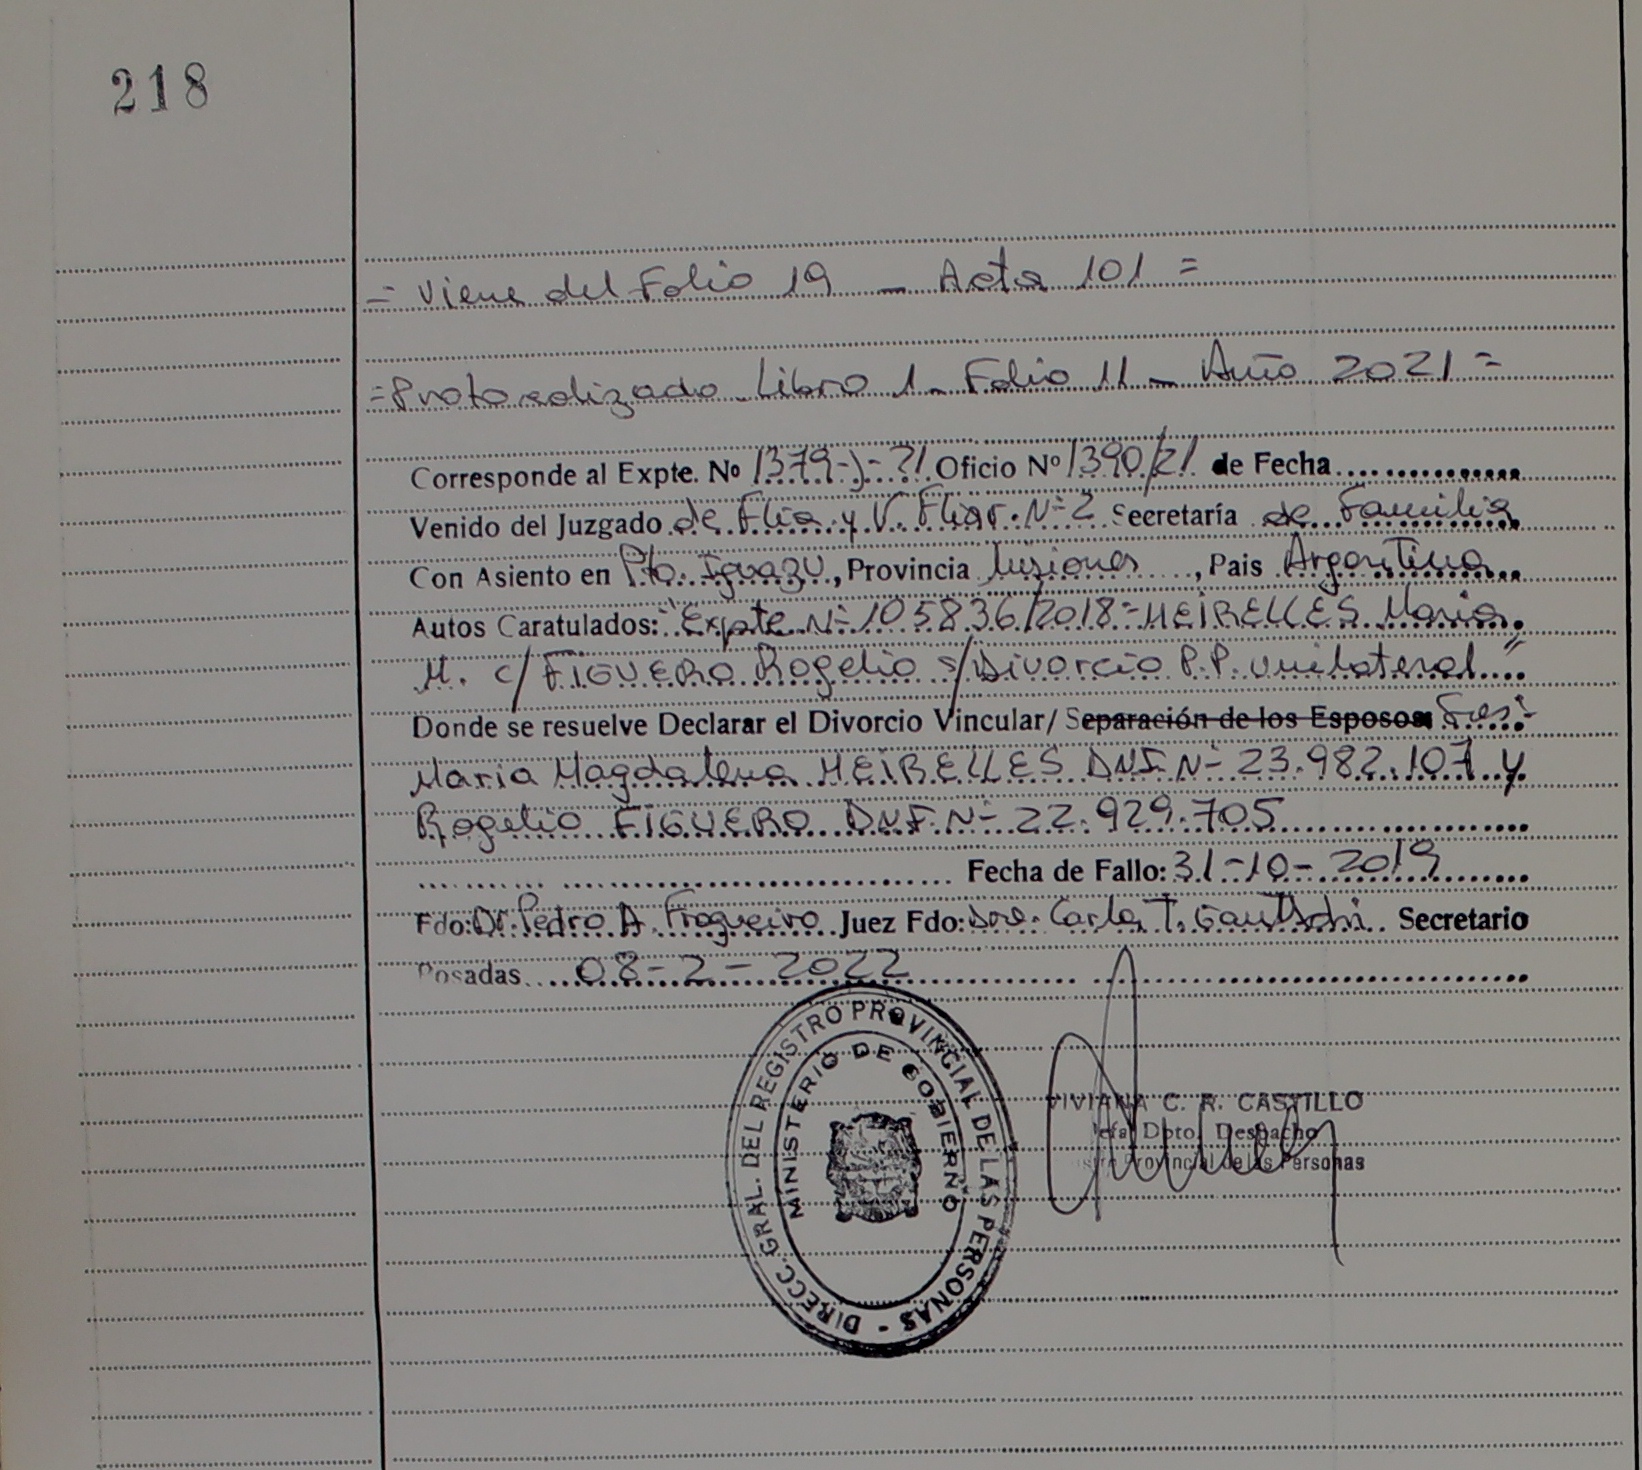 218
= Viene del Folio 19 - Acta 101 =
= Protocolizado Libro 1 - Folio 11 - Año 2021 =
Corresponde al Expte. Nº 1379-J-21 Oficio Nº 1390/21 de Fecha
Venido del Juzgado de Flia. y V. Fliar. Nº 2 Secretaría de Familia
Con Asiento en Pto. Iguazu, Provincia Misiones, Pais Argentina
Autos Caratulados: "Expte Nº 105836/2018 - MEIRELLES Maria
M. c/ FIGUERO Rogelio s/ Divorcio P.P. unilateral"
Donde se resuelve Declarar el Divorcio Vincular/ Separación de los Esposos
Maria Magdalena MEIRELLES DNI Nº 23.982.107 y
Rogelio FIGUERO DNI Nº 22.929.705
Fecha de Fallo: 31-10-2019
Fdo: Dr. Pedro A. Fragueiro Juez Fdo: Dra. Carla T. Gautschi Secretario
Posadas 08-2-2022
DIRECC. GRAL. DEL REGISTRO PROVINCIAL DE LAS PERSONAS -
MINISTERIO DE GOBIERNO
VIVIANA C. R. CASTILLO
Jefa Dpto. Despacho
Provincial de las Personas